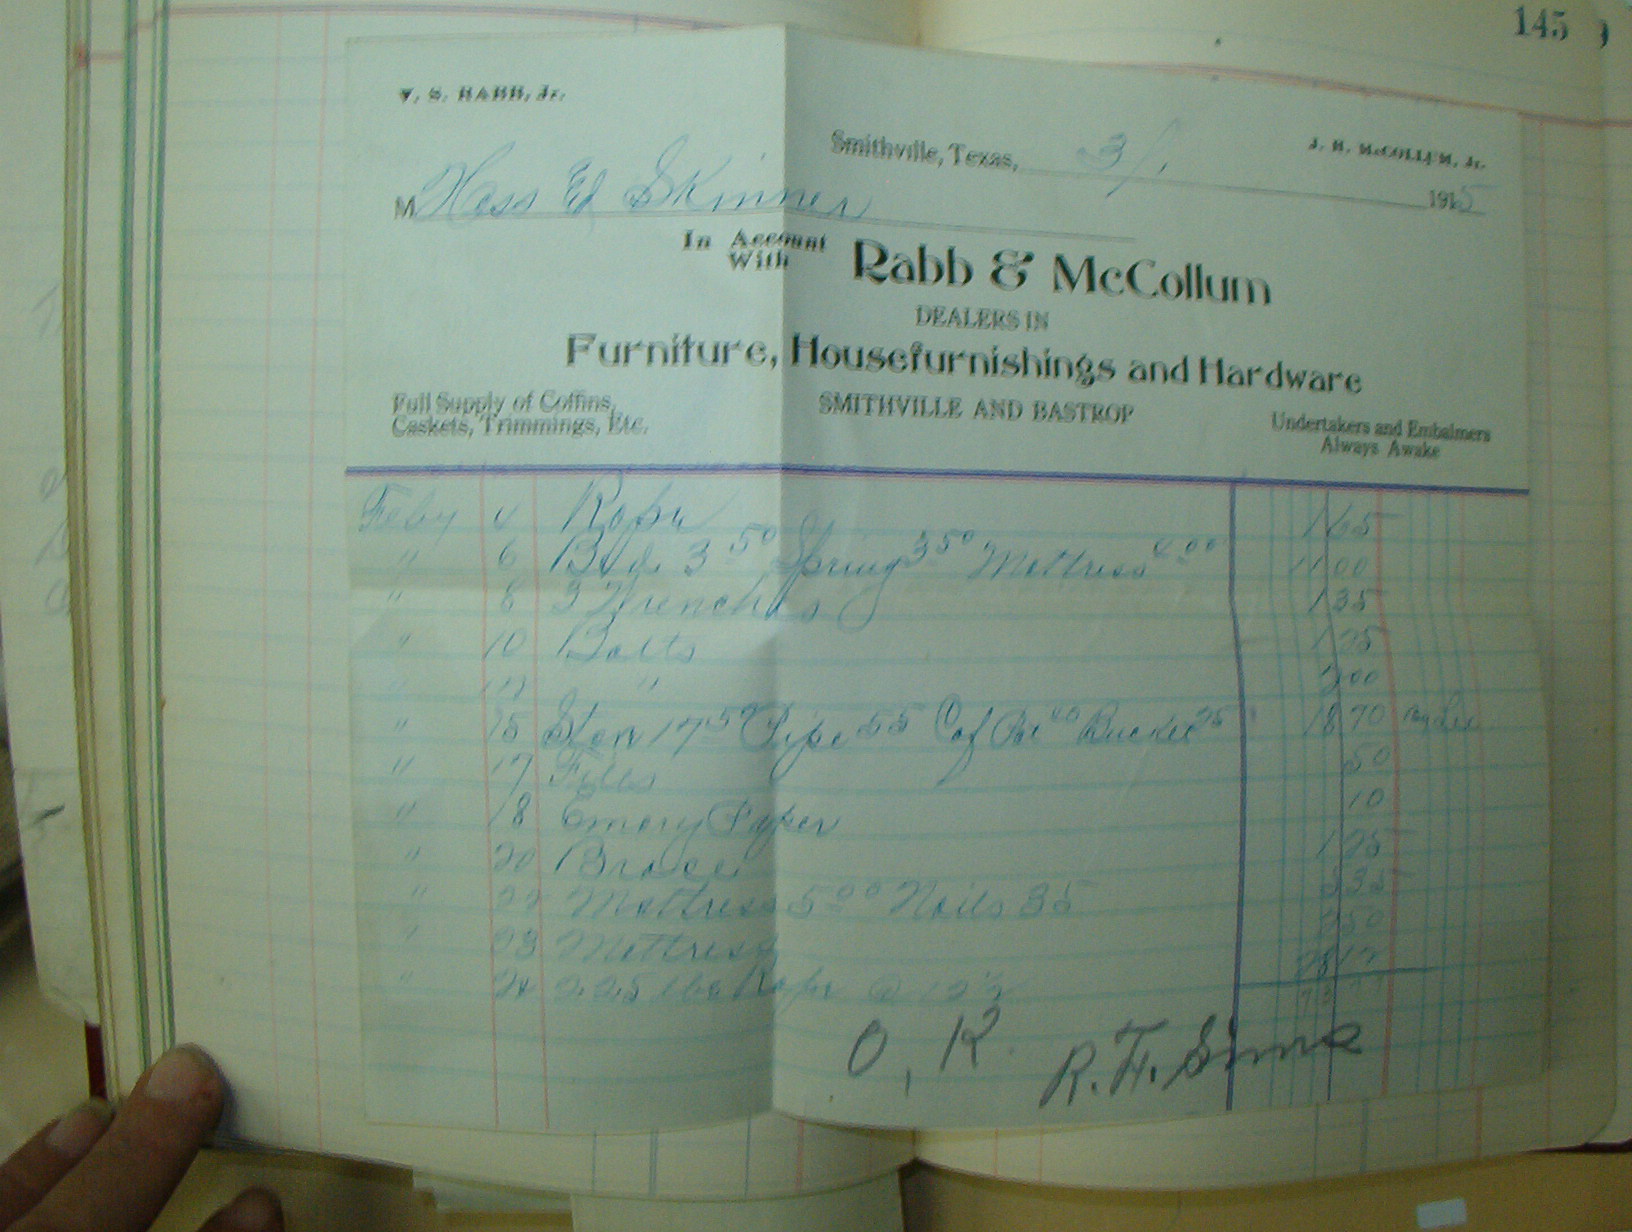 145
V. S. RABB, Jr.
Smithville, Texas, 3/1 1915
J. H. McCOLLUM, Jr.
M Hess Ed Skinner
In Account With Rabb & McCollum
DEALERS IN
Furniture, Housefurnishings and Hardware
Full Supply of Coffins,
Caskets, Trimmings, Etc.
SMITHVILLE AND BASTROP
Undertakers and Embalmers
Always Awake
Feby 4 Rope 1 65
" 6 Bed 3 50 Spring 3 50 Mattress 4 00 11 00
" 8 3 Wrenches 1 35
" 10 Bolts 1 25
" " 00
" 15 Stove 17 50 Pipe 55 Cof Pot 40 Bucket 25 18 70
" 17 Files 50
" 18 Emory Paper 10
" 20 Brace 1 25
" Mattress 5 00 Nails 35 5 35
" 23 Mattress 3 50
" 24 225 lbs Rope @ 12½ 28 12
O, K.
R. H.